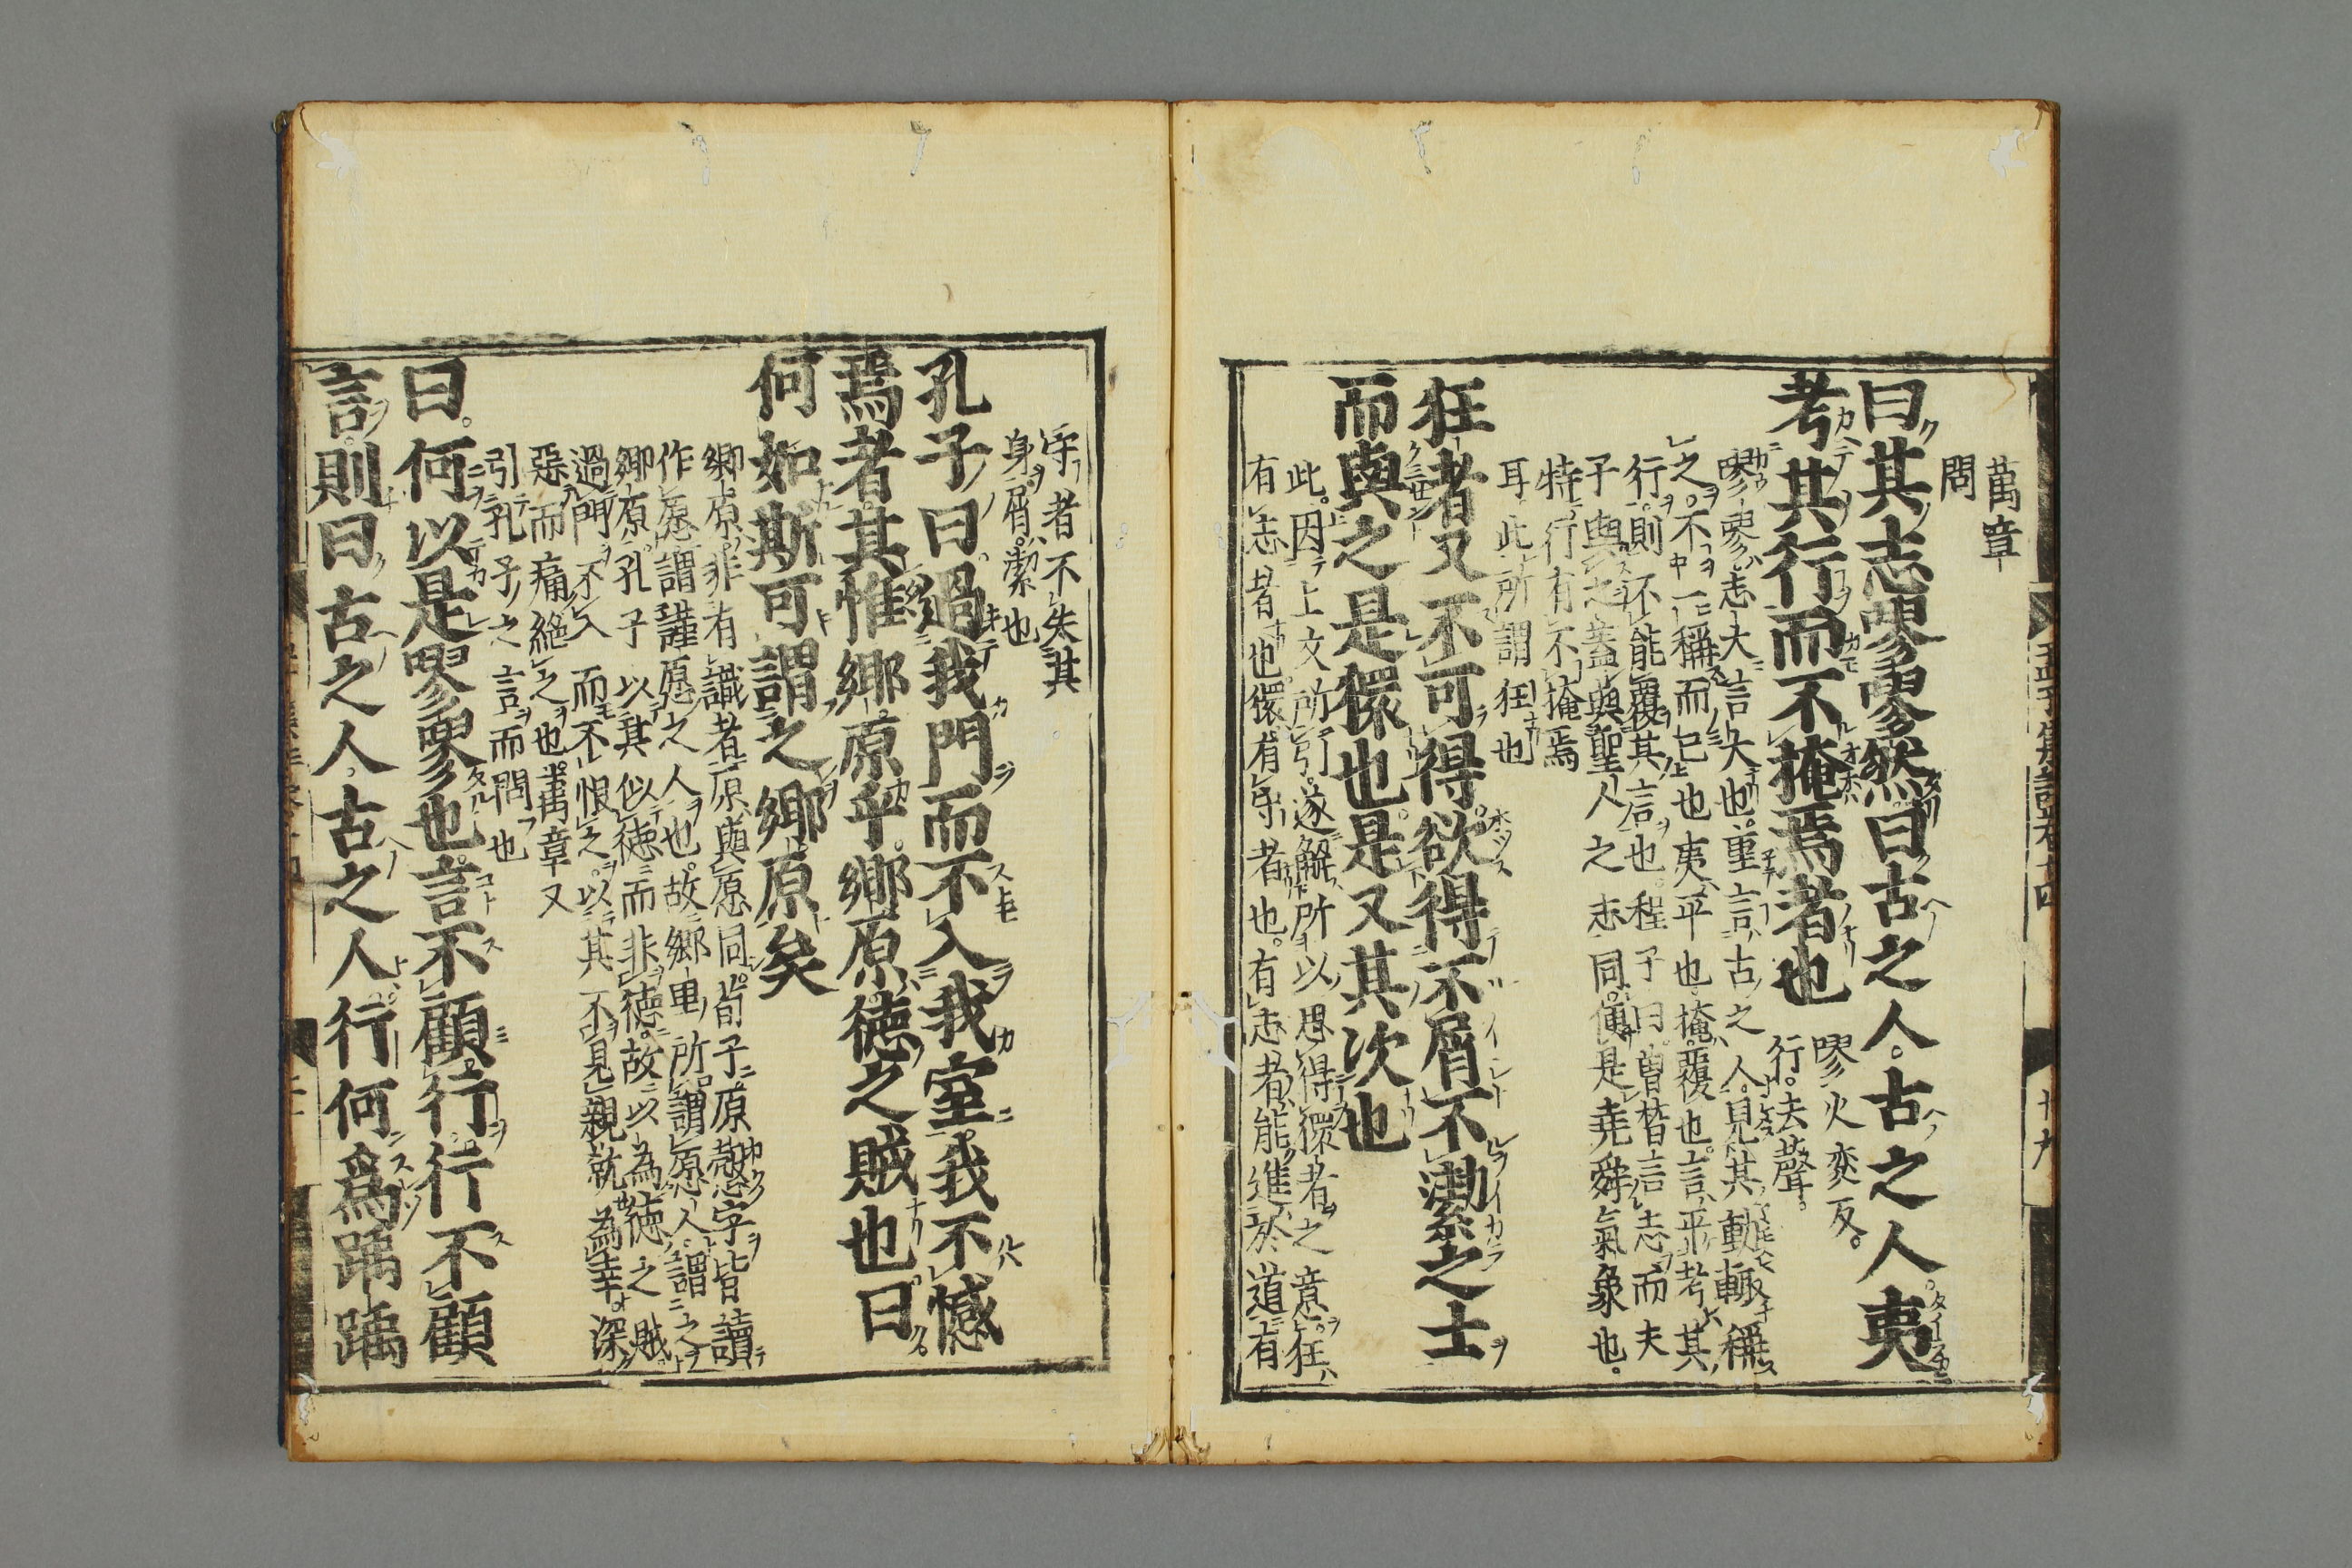 萬章
問
曰其志嘐嘐然曰古之人。古之人。夷
考其行而不掩焉者也
嘐火交反。
行。去聲。
嘐嘐志大言大也。重言古之人。見其動輒稱
之。不一稱而已也夷平也掩。覆也。言平考其
行。則不能覆其言也。程子曰。曾皙言志而夫
子與之蓋與聖人之志同。便是堯舜氣象也。
特行有不掩焉
耳。此所謂狂也
狂者又不可得。欲得不屑不潔之士
而與之是獧也。是又其次也
此。因上文所引。遂解所以思得獧者之意。狂、
有志者也獧、有守者也。有志者、能進於道有
守者不失其
身。屑。潔也
孔子曰。過我門而不入我室。我不憾
焉者。其惟鄉原乎。鄉原德之賊也。曰。
何如斯可謂之鄉原矣
鄉原。非有識者原與愿同。荀子原慤字皆讀
作愿謂謹愿之人也。故鄉里所謂愿人謂之
鄉原。孔子以其似德而非德。故以為德之賊
過門不入而不恨之。以其不見親就為幸。深
惡而痛絕之也。萬章又
引孔子之言而問也
曰。何以是嘐嘐也。言不顧行。行不顧
言。則曰古之人。古之人。行何爲踽踽